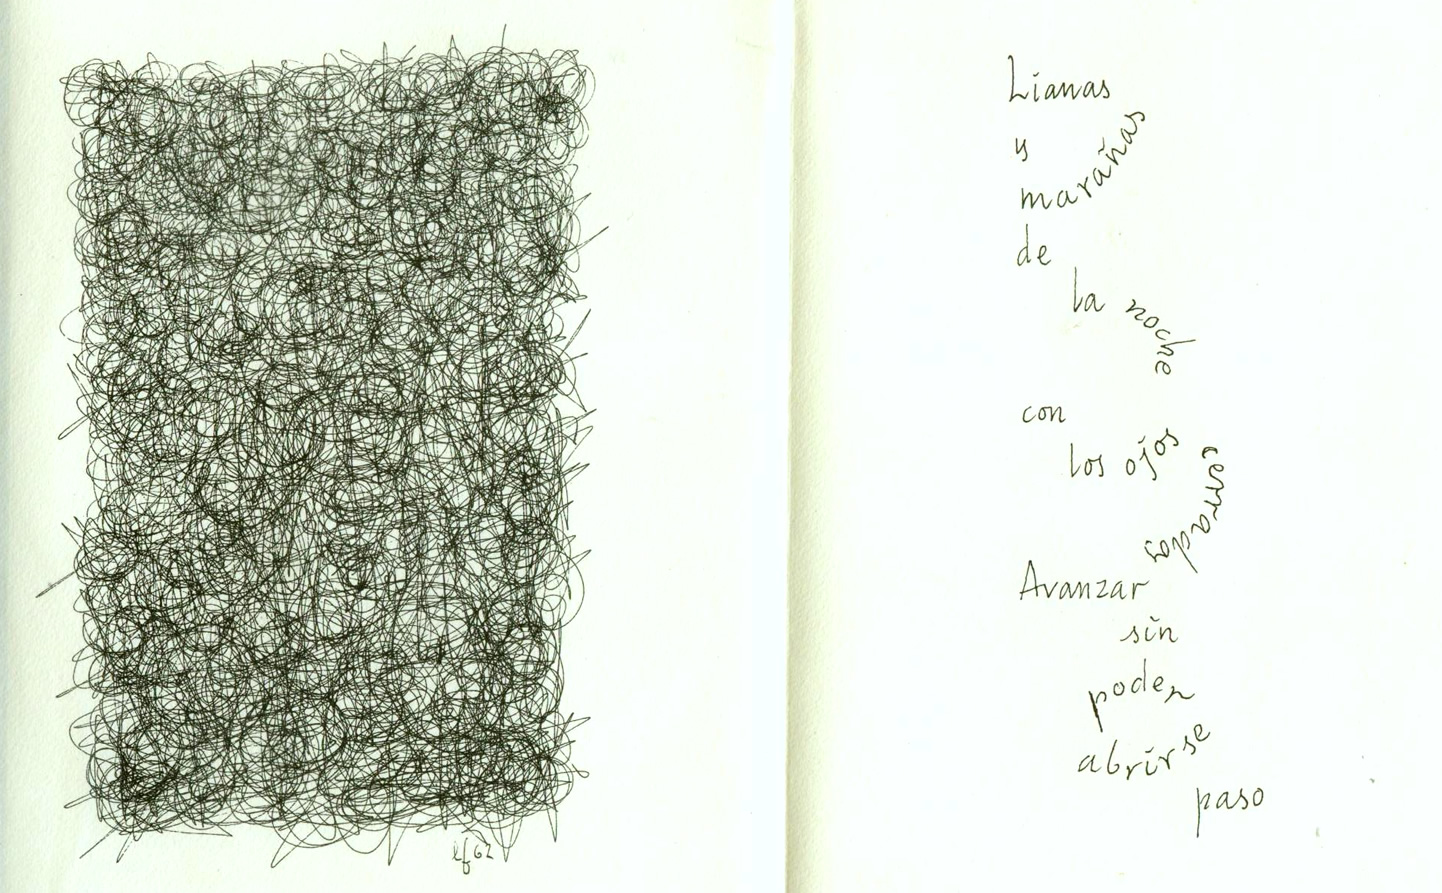 lf 62
Lianas
y
marañas
de
la noche
con
los ojos
cerrados
Avanzar
sin
poder
abrirse
paso